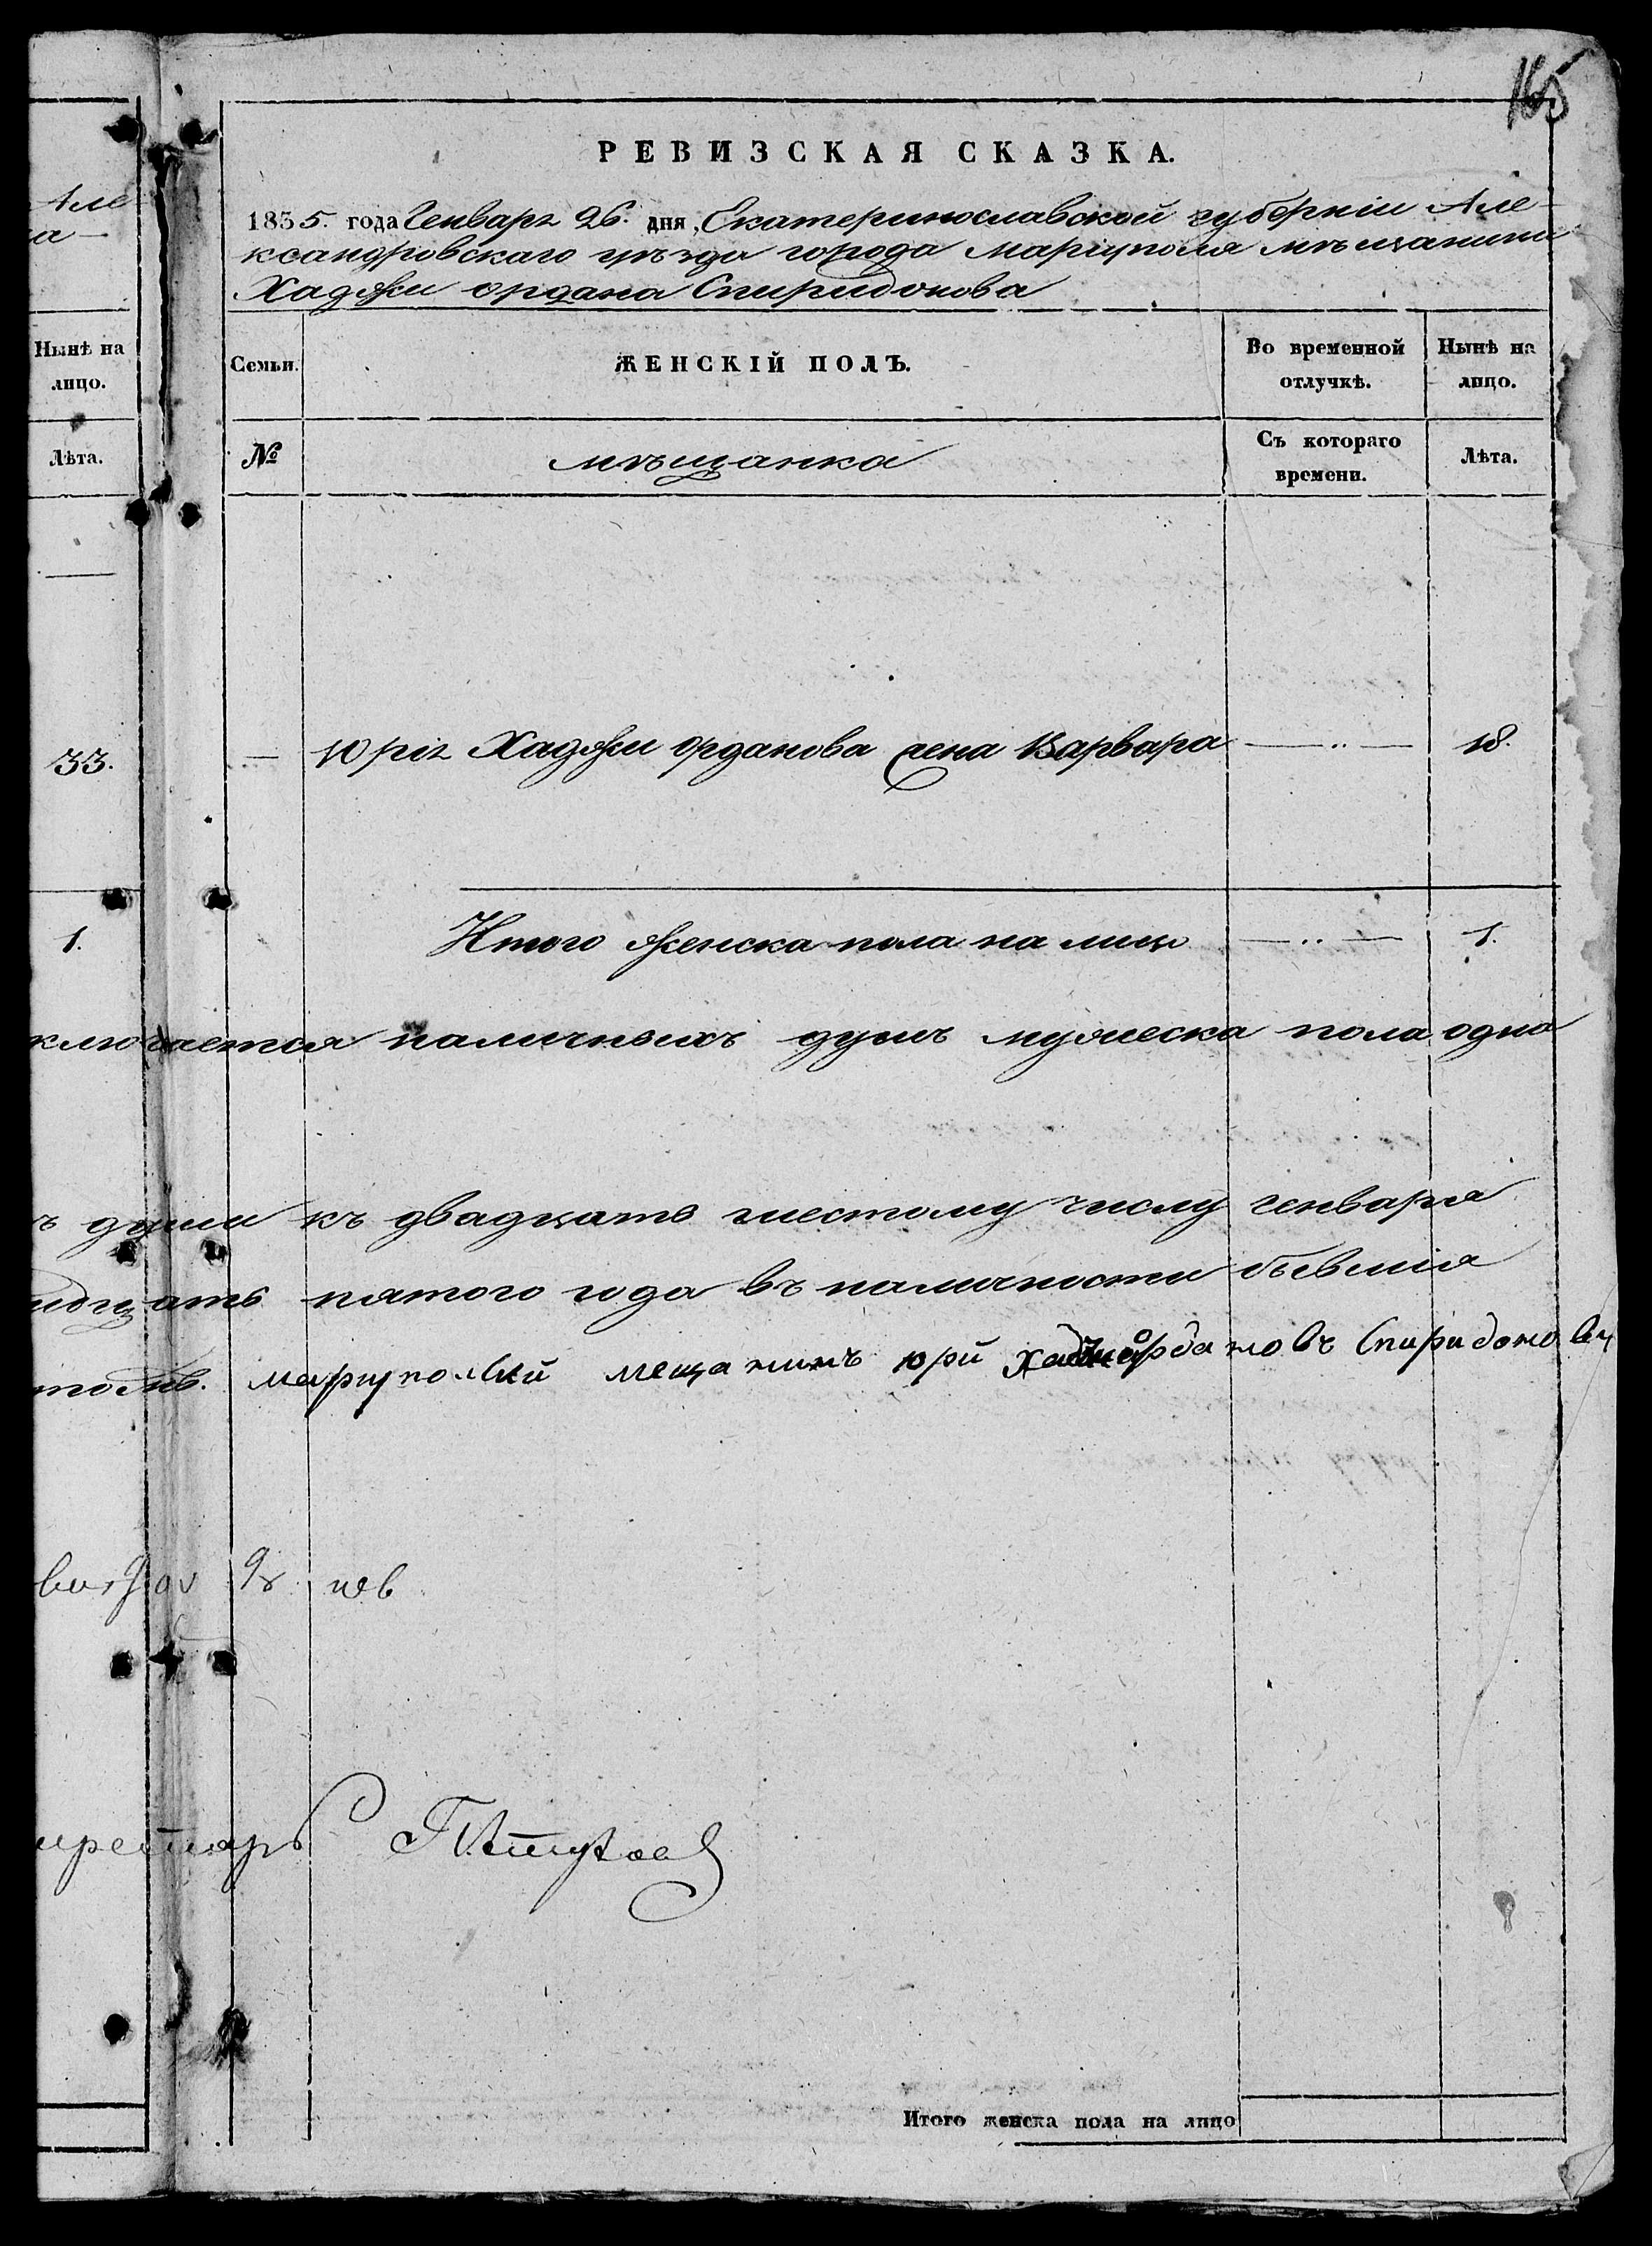 165
РЕВИЗСКАЯ СКАЗКА.
1835. года Генваря 26. дня, Екатеринославской губерніи Але-
ксандровскаго уѣзда города Маріуполя мѣщанина
Хаджи Ордана Спиридонова
Але
а
Нынѣ на
лицо.
Лѣта.
Семьи.
ЖЕНСКІЙ ПОЛЪ.
Во временной
отлучкѣ.
Нынѣ на
лицо.
№
мѣщанка
Съ котораго
времени.
Лѣта.
33.
— Юрія Хаджи Орданова жена Варвара — „ — 18.
1.
Итого женска пола на лицо — „ — 1.
ключается наличныхъ душъ мужеска пола одна
ъ души къ двадцать шестому числу генваря
идцать пятого года въ наличности бывшія
маріуполскій мещанинъ юрй Хаджиордановъ Спиридонов
кретарь
Итого женска пола на лицо